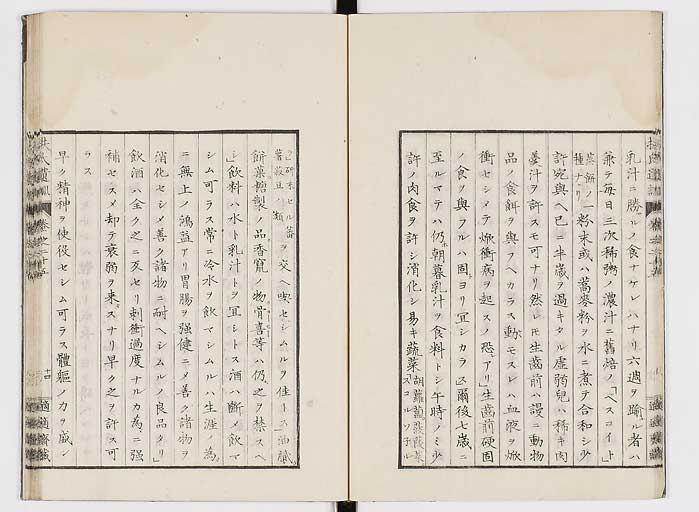 乳汁ニ勝ルノ食ナケレハナリ六週ヲ踰ル者ハ
兼テ毎日三次稀粥ノ濃汁ニ舊焙ノ「ベスコイト」
蒸餅ノ一種ナリ粉末或ハ蕎麥粉ヲ水ニ煮テ合和シ少
許宛與ヘ已ニ半歳ヲ過キタル虚弱兒ハ稀キ肉
羹汁ヲ許スモ可ナリ然レ𪜈生齒前ハ謾ニ動物
品ノ食餌ヲ與フヘカラス動モスレハ血液ヲ焮
衝セシメテ焮衝病ヲ起スノ恐アリ」生齒前硬固
ノ食ヲ與フルハ固ヨリ宜シカラス爾後七歳ニ
至ルマテハ仍ホ朝暮乳汁ヲ食料トシ午時ノミ少
許ノ肉食ヲ許シ消化シ易キ蔬菜
胡蘿蔔菠薐菜
「スコルソ子ル
研末セル
ヲ交ヘ喫セシムルヲ佳トス」油膩
餅菓糖製ノ品香竄ノ物骨喜等ハ仍之ヲ禁スヘ
シ」飲料ハ水ト乳汁トヲ宜シトス酒ハ斷メ飲マ
シム可ラス常ニ冷水ヲ飲マシムルハ生涯ノ為
ニ無上ノ鴻益アリ胃腸ヲ強健ニメ善ク諸物ヲ
消化セシメ善ク諸物ニ耐ヘシムルノ良品タリ
飲酒ハ全ク之ニ反セリ刺衝過度ナルカ為ニ強
補セスメ却テ衰弱ヲ来スナリ早ク之ヲ許ス可
ラス
早ク精神ヲ使役セシム可ラス體軀ノ力ヲ盛ン
十四
適適齋藏